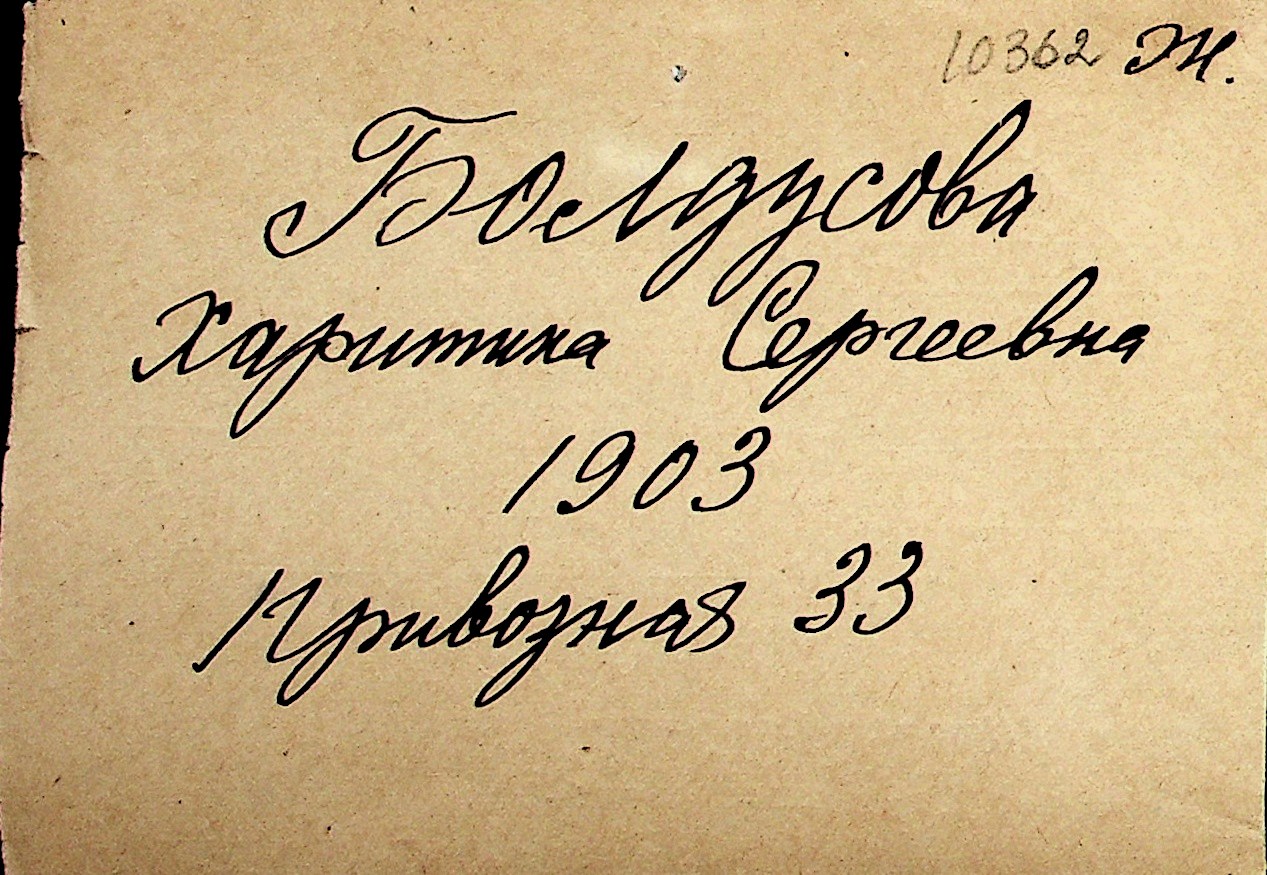 10362 Ж.
Болдусова
Харитина Сергеевна
1903
Привозная 33